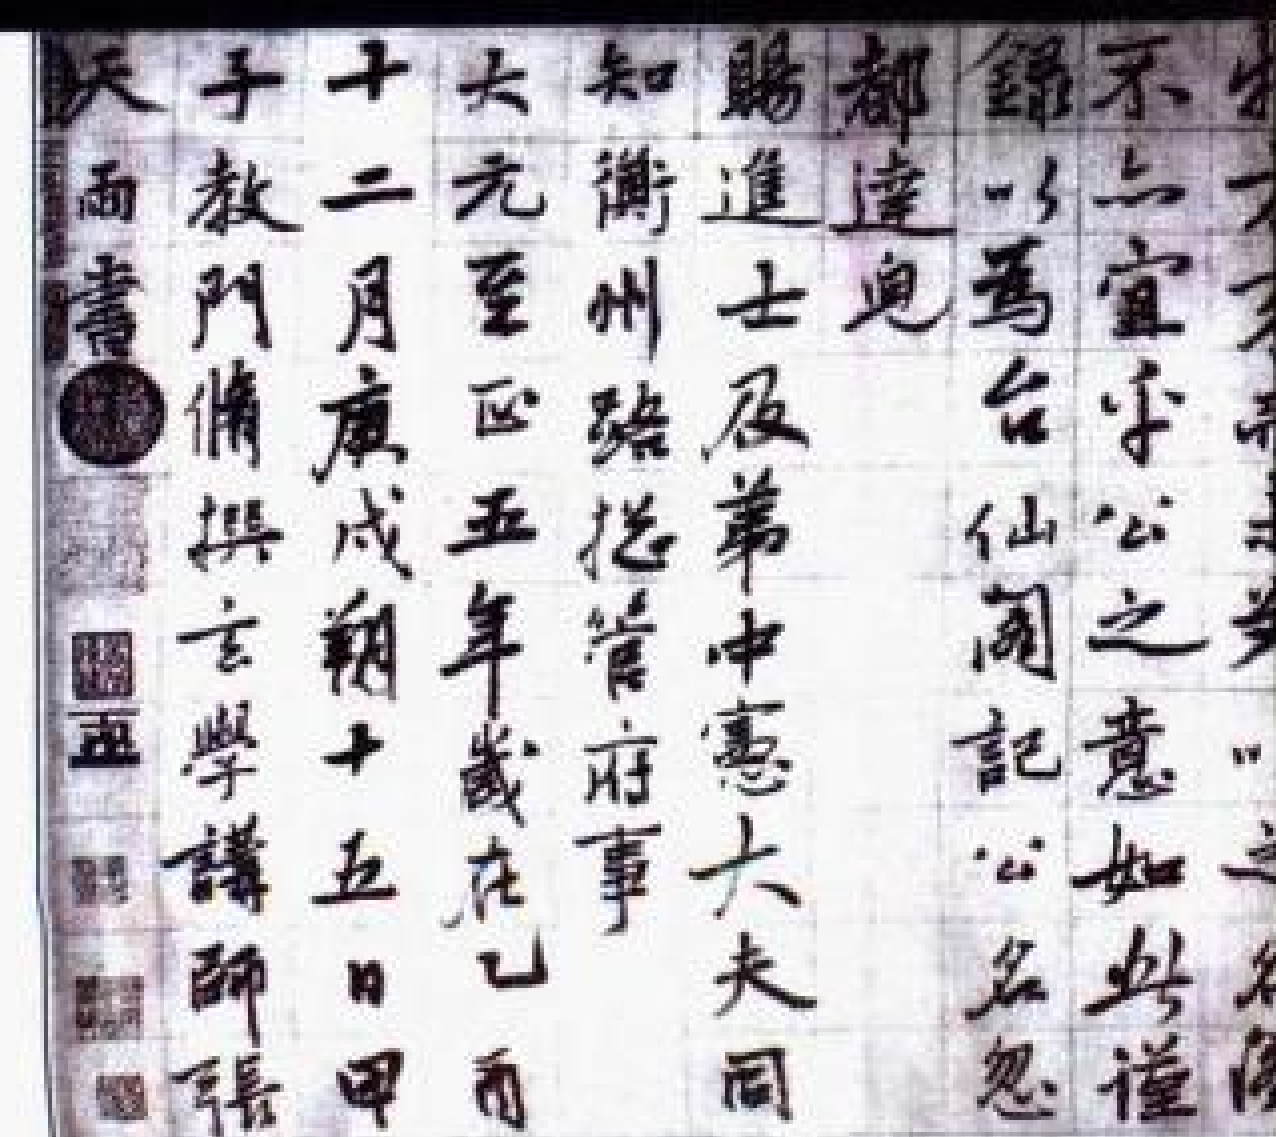 不亦宜乎公之意如此謹
錄以為台仙閣記公名忽
都達兒
賜進士及第中憲大夫同
知衡州路捴管府事
大元至正五年歲在乙酉
十二月庚戌朔十五日甲
子教門脩撰玄學講師張
天雨書